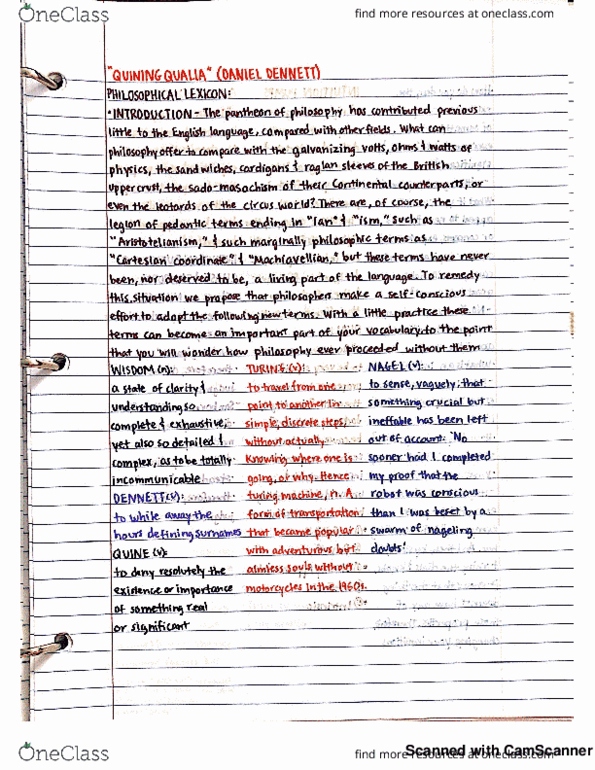 OneClass
find more resources at oneclass.com
"QUINING QUALIA" (DANIEL DENNETT)
PHILOSOPHICAL LEXICON:
•INTRODUCTION - The pantheon of philosophy has contributed previous
little to the English language, compared with other fields. What can
philosophy offer to compare with the galvanizing volts, ohms & watts of
physics, the sandwiches, cardigans & raglan sleeves of the British
upper crust, the sado-masochism of their Continental counterparts, or
even the leotards of the circus world? There are, of course, the
legion of pedantic terms ending in "ian" & "ism," such as
"Aristotelianism," & such marginally philosophic terms as
"Cartesian coordinate" & "Machiavellian," but these terms have never
been, nor deserved to be, a living part of the language. To remedy
this situation we propose that philosophers make a self-conscious
effort to adopt the following new terms. With a little practice these
terms can become an important part of your vocabulary, to the point
that you will wonder how philosophy ever proceeded without them
WISDOM (n):
a state of clarity &
understanding so
complete & exhaustive,
yet also so detailed &
complex, as to be totally
incommunicable
DENNETT (v):
to while away the
hours defining surnames
QUINE (v):
to deny resolutely the
existence or importance
of something real
or significant
TURING (v):
to travel from one
point to another in
simple, discrete steps,
without actually
knowing where one is
going, or why. Hence
turing machine, n. A
form of transportation
that became popular
with adventurous but
aimless souls without
motorcycles in the 1960s.
NAGEL (v):
to sense, vaguely, that
something crucial but
ineffable has been left
out of account: "No
sooner had I completed
my proof that the
robot was conscious
than I was beset by a
swarm of nageling
doubts"
OneClass
find more resources at oneclass.com
Scanned with CamScanner